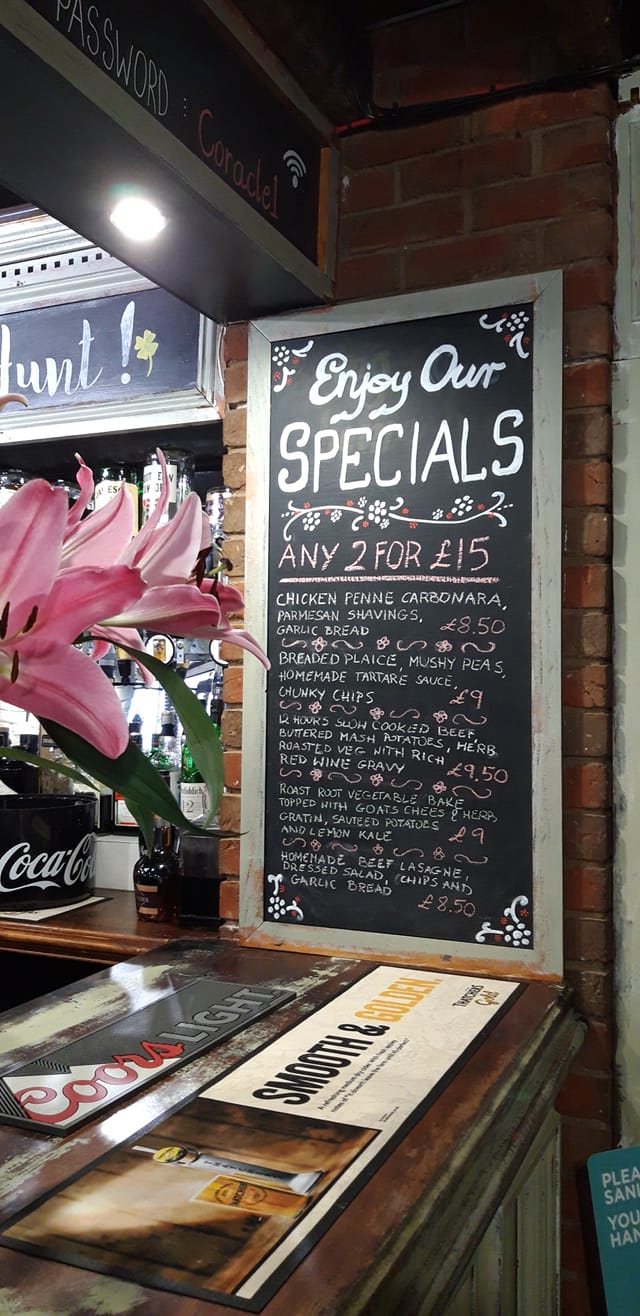 PASSWORD : Coracle1
Hunt!
Enjoy Our
SPECIALS
ANY 2 FOR £15
CHICKEN PENNE CARBONARA,
PARMESAN SHAVINGS,
GARLIC BREAD £8.50
BREADED PLAICE, MUSHY PEAS,
HOMEMADE TARTARE SAUCE,
CHUNKY CHIPS £9
12 HOURS SLOW COOKED BEEF
BUTTERED MASH POTATOES, HERB
ROASTED VEG WITH RICH
RED WINE GRAVY £9,50
ROAST ROOT VEGETABLE BAKE
TOPPED WITH GOATS CHEES & HERB
GRATIN, SAUTEED POTATOES
AND LEMON KALE £9
HOMEMADE BEEF LASAGNE,
DRESSED SALAD, CHIPS AND
GARLIC BREAD £8.50
Coca-Co
Coors LIGHT
SMOOTH & GOLDEN.
THATCHERS
Gold
PLEA
SANI
YOU
HAN